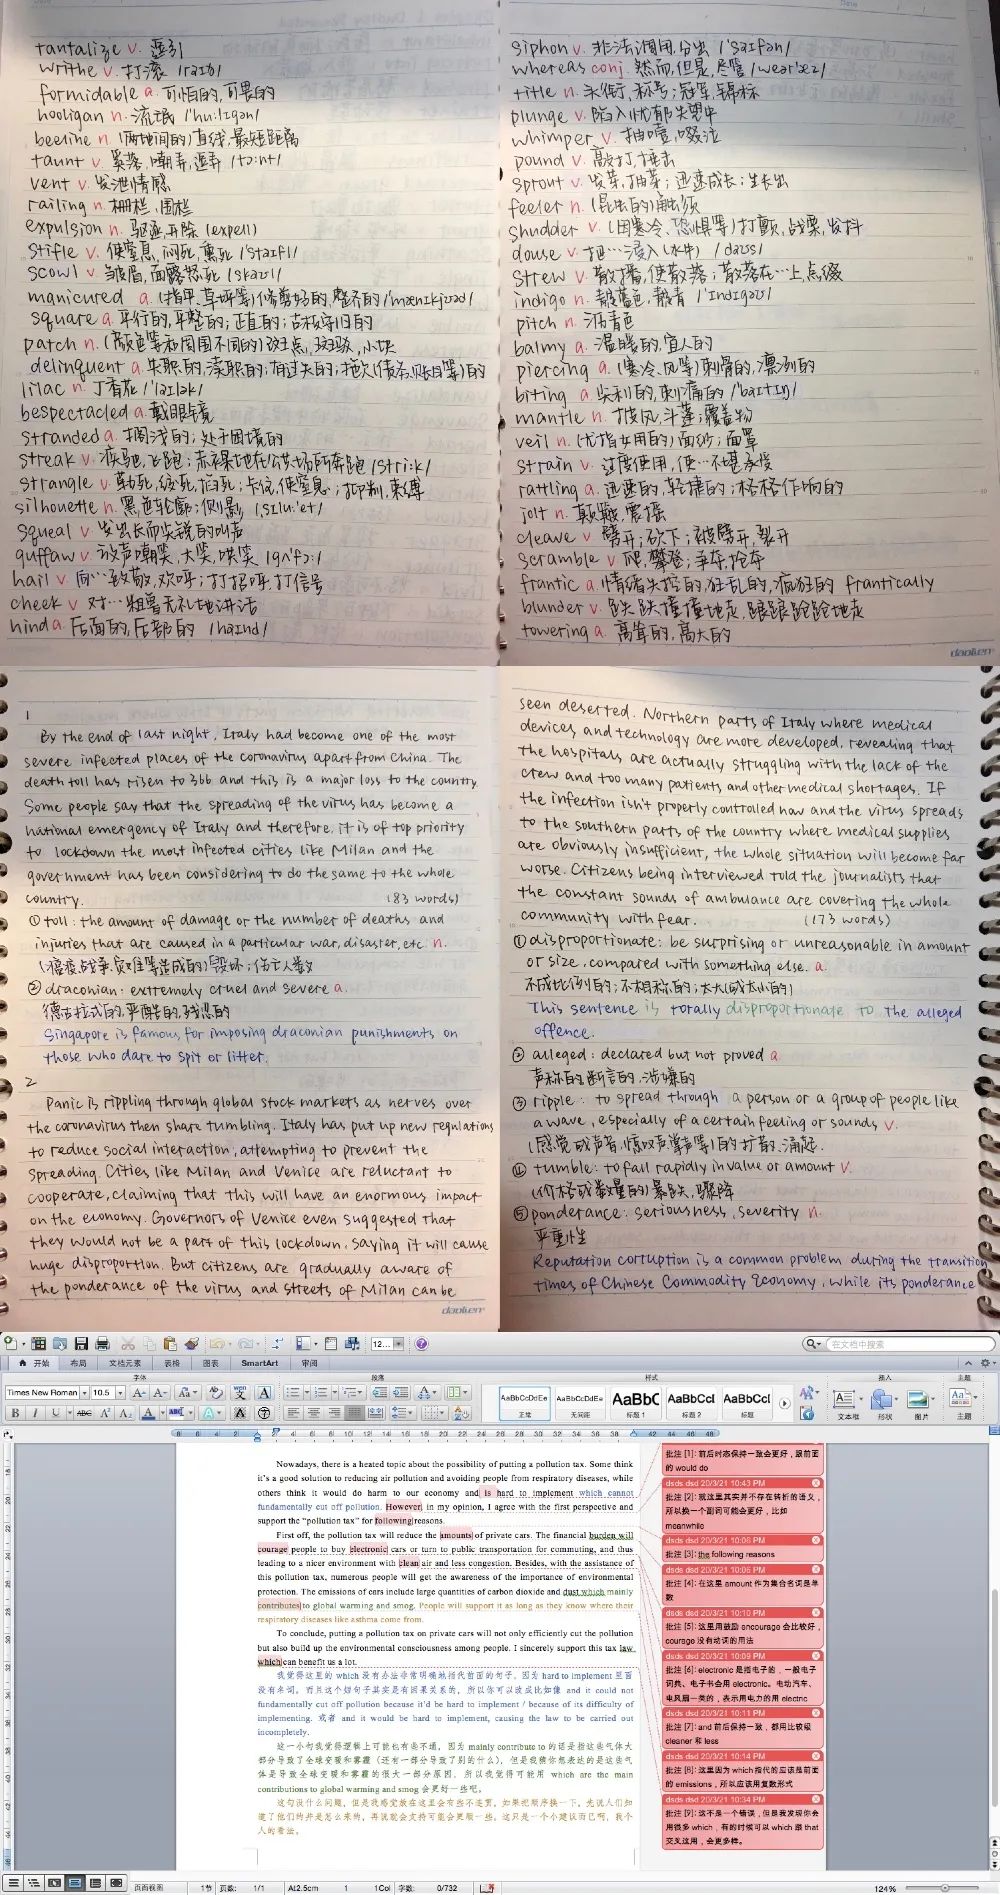 tantalize v. 逗引
writhe v. 打滚 /raɪð/
formidable a. 可怕的,可畏的
hooligan n. 流氓 /'hu:lɪgən/
beeline n. (两地间的)直线,最短距离
taunt v. 奚落,嘲弄,逗弄 /tɔ:nt/
vent v. 发泄情感
railing n. 栅栏,围栏
expulsion n. 驱逐,开除 (expel)
stifle v. 使窒息,闷死,熏死 /'staɪfl/
scowl v. 皱眉,面露怒 /skaʊl/
manicured a. (指甲、草坪等)修剪好的,整齐的 /'mænɪkjʊəd/
square a. 平行的,平整的;正直的;古板守旧的
patch n. (颜色等和周围不同的)斑点,斑驳,小块
delinquent a. 失职的,渎职的;有过失的;拖欠(债务、账目等)的
lilac n. 丁香花 /'laɪlək/
bespectacled a. 戴眼镜
stranded a. 搁浅的;处于困境的
streak v. 疾驰,飞跑;赤裸地在公共场所奔跑 /stri:k/
strangle v. 勒死,绞死,掐死;卡住,使窒息;抑制,束缚
silhouette n. 黑色轮廓;侧影 /ˌsɪlu:'et/
squeal v. 发出长而尖锐的叫声
guffaw v. 放声嘲笑,大笑,哄笑 /gʌ'fɔ:/
hail v. 向…致敬,欢呼;打招呼,打信号
cheek v. 对…粗鲁无礼地讲话
hind a. 后面的,后部的 /haɪnd/
siphon v. 非法调用,分出 /'saɪfən/
whereas conj. 然而,但是,尽管 /weər'æz/
title n. 头衔,称号;冠军,锦标
plunge v. 陷入忧郁失望中
whimper v. 抽噎,啜泣
pound v. 敲打,捶击
sprout v. 发芽,抽芽;迅速成长;生长出
feeler n. (昆虫的)触须
shudder v. (因寒冷、恐惧等)打颤,战栗,发抖
douse v. 把…浸入(水中) /daʊs/
strew v. 散播,使散落;散落在…上,点缀
indigo n. 靛蓝色,靛青 /'ɪndɪgəʊ/
pitch n. 沥青色
balmy a. 温暖的,宜人的
piercing a. (寒冷、风等)刺骨的,凛冽的
biting a. 尖利的,刺痛的 /'baɪtɪŋ/
mantle n. 披风,斗蓬;覆盖物
veil n. (尤指女用的)面纱;面罩
strain v. 过度使用,使…不堪承受
rattling a. 迅速的,轻捷的;格格作响的
jolt n. 颠簸,震摇
cleave v. 劈开;砍下;被劈开,裂开
scramble v. 爬,攀登;争夺,抢夺
frantic a. 情绪失控的,狂乱的,疯狂的 frantically
blunder v. 跌跌撞撞地走,踉踉跄跄地走
towering a. 高耸的,高大的
1
By the end of last night, Italy had become one of the most
severe infected places of the coronavirus apart from China. The
death toll has risen to 366 and this is a major loss to the country.
Some people say that the spreading of the virus has become a
national emergency of Italy and therefore, it is of top priority
to lockdown the most infected cities like Milan and the
government has been considering to do the same to the whole
country. (83 words)
① toll : the amount of damage or the number of deaths and
injuries that are caused in a particular war, disaster, etc. n.
战争、灾难等造成的)毁坏;伤亡人数
② draconian: extremely cruel and severe a.
德古拉式的,严酷的,残忍的
Singapore is famous for imposing draconian punishments on
those who dare to spit or litter.
2
Panic is rippling through global stock markets as nerves over
the coronavirus then share tumbling. Italy has put up new regulations
to reduce social interaction, attempting to prevent the
spreading. Cities like Milan and Venice are reluctant to
cooperate, claiming that this will have an enormous impact
on the economy. Governors of Venice even suggested that
they would not be a part of this lockdown, saying it will cause
huge disproportion. But citizens are gradually aware of
the ponderance of the virus and streets of Milan can be
daolien
seen deserted. Northern parts of Italy where medical
devices and technology are more developed, revealing that
the hospitals are actually struggling with the lack of the
crew and too many patients and other medical shortages. If
the infection isn't properly controlled now and the virus spreads
to the southern parts of the country where medical supplies
are obviously insufficient, the whole situation will become far
worse. Citizens being interviewed told the journalists that
the constant sounds of ambulance are covering the whole
community with fear. (173 words)
① disproportionate: be surprising or unreasonable in amount
or size, compared with something else. a.
不成比例的;不相称的;太大(或太小的)
This sentence is totally disproportionate to the alleged
offence.
② alleged : declared but not proved a.
声称的,断言的,涉嫌的
③ ripple : to spread through a person or a group of people like
a wave, especially of a certain feeling or sounds v.
(感觉或声音、惊叹声、掌声等)的扩散、涌起.
④ tumble: to fall rapidly in value or amount v.
(价格或数量的)暴跌、骤降
⑤ ponderance: seriousness, severity n.
严重性
Reputation corruption is a common problem during the transition
times of Chinese Commodity Economy, while its ponderance
12...
在文档中搜索
开始 布局 文档元素 表格 图表 SmartArt 审阅
字体 段落 样式 插入 主题
Times New Roman 10.5
AaBbCcDdEe 正常 AaBbCcDdEe 无间距 AaBbC 标题 1 AaBbCcI 标题 2 AaBbCcI 标题
文本框 形状 图片 主题
Nowadays, there is a heated topic about the possibility of putting a pollution tax. Some think
it's a good solution to reducing air pollution and avoiding people from respiratory diseases, while
others think it would do harm to our economy and is hard to implement which cannot
fundamentally cut off pollution. However, in my opinion, I agree with the first perspective and
support the "pollution tax" for following reasons.
First off, the pollution tax will reduce the amounts of private cars. The financial burden will
courage people to buy electronic cars or turn to public transportation for commuting, and thus
leading to a nicer environment with clean air and less congestion. Besides, with the assistance of
this pollution tax, numerous people will get the awareness of the importance of environmental
protection. The emissions of cars include large quantities of carbon dioxide and dust which mainly
contributes to global warming and smog. People will support it as long as they know where their
respiratory diseases like asthma come from.
To conclude, putting a pollution tax on private cars will not only efficiently cut the pollution
but also build up the environmental consciousness among people. I sincerely support this tax law
which can benefit us a lot.
我觉得这里的 which 没有办法非常明确地指代前面的句子,因为 hard to implement 里面
没有名词。而且这个短句子其实是有因果关系的,所以你可以改成比如像 and it could not
fundamentally cut off pollution because it'd be hard to implement / because of its difficulty of
implementing. 或者 and it would be hard to implement, causing the law to be carried out
incompletely.
这一小句我觉得逻辑上可能也有些不通,因为 mainly contribute to 的话是指这些气体大
部分导致了全球变暖和雾霾(还有一部分导致了别的什么),但是我猜你想表达的是这些气
体是导致全球变暖和雾霾的很大一部分原因,所以我觉得可能用 which are the main
contributions to global warming and smog 会更好一些吧。
这句没什么问题,但是我感觉放在这里会有些不连贯,如果把顺序换一下,先说人们知
道了他们的病是怎么来的,再说就会支持可能会更顺一些。这只是一个小建议而已啊,我个
人的看法。
批注 [1]: 前后时态保持一致会更好,跟前面
的 would do
dsds dsd 20/3/21 10:43 PM
批注 [2]: 就这里其实并不存在转折的语义,
所以换一个副词可能会更好,比如
meanwhile
dsds dsd 20/3/21 10:06 PM
批注 [3]: the following reasons
dsds dsd 20/3/21 10:06 PM
批注 [4]: 在这里 amount 作为集合名词是单
数
dsds dsd 20/3/21 10:10 PM
批注 [5]: 这里用鼓励 encourage 会比较好,
courage 没有动词的用法
dsds dsd 20/3/21 10:09 PM
批注 [6]: electronic 是指电子的,一般电子
词典、电子书会用 electronic。电动汽车、
电风扇一类的,表示用电力的用 electric
dsds dsd 20/3/21 10:11 PM
批注 [7]: and 前后保持一致,都用比较级
cleaner 和 less
dsds dsd 20/3/21 10:14 PM
批注 [8]: 这里因为 which 指代的应该是前面
的 emissions,所以应该用复数形式
dsds dsd 20/3/21 10:34 PM
批注 [9]: 这不是一个错误,但是我发现你会
用很多 which,有的时候可以 which 跟 that
交叉这用,会更多样。
页面视图 1节 页数: 1/1 At2.5cm 1 1Col 字数: 0/732 124%